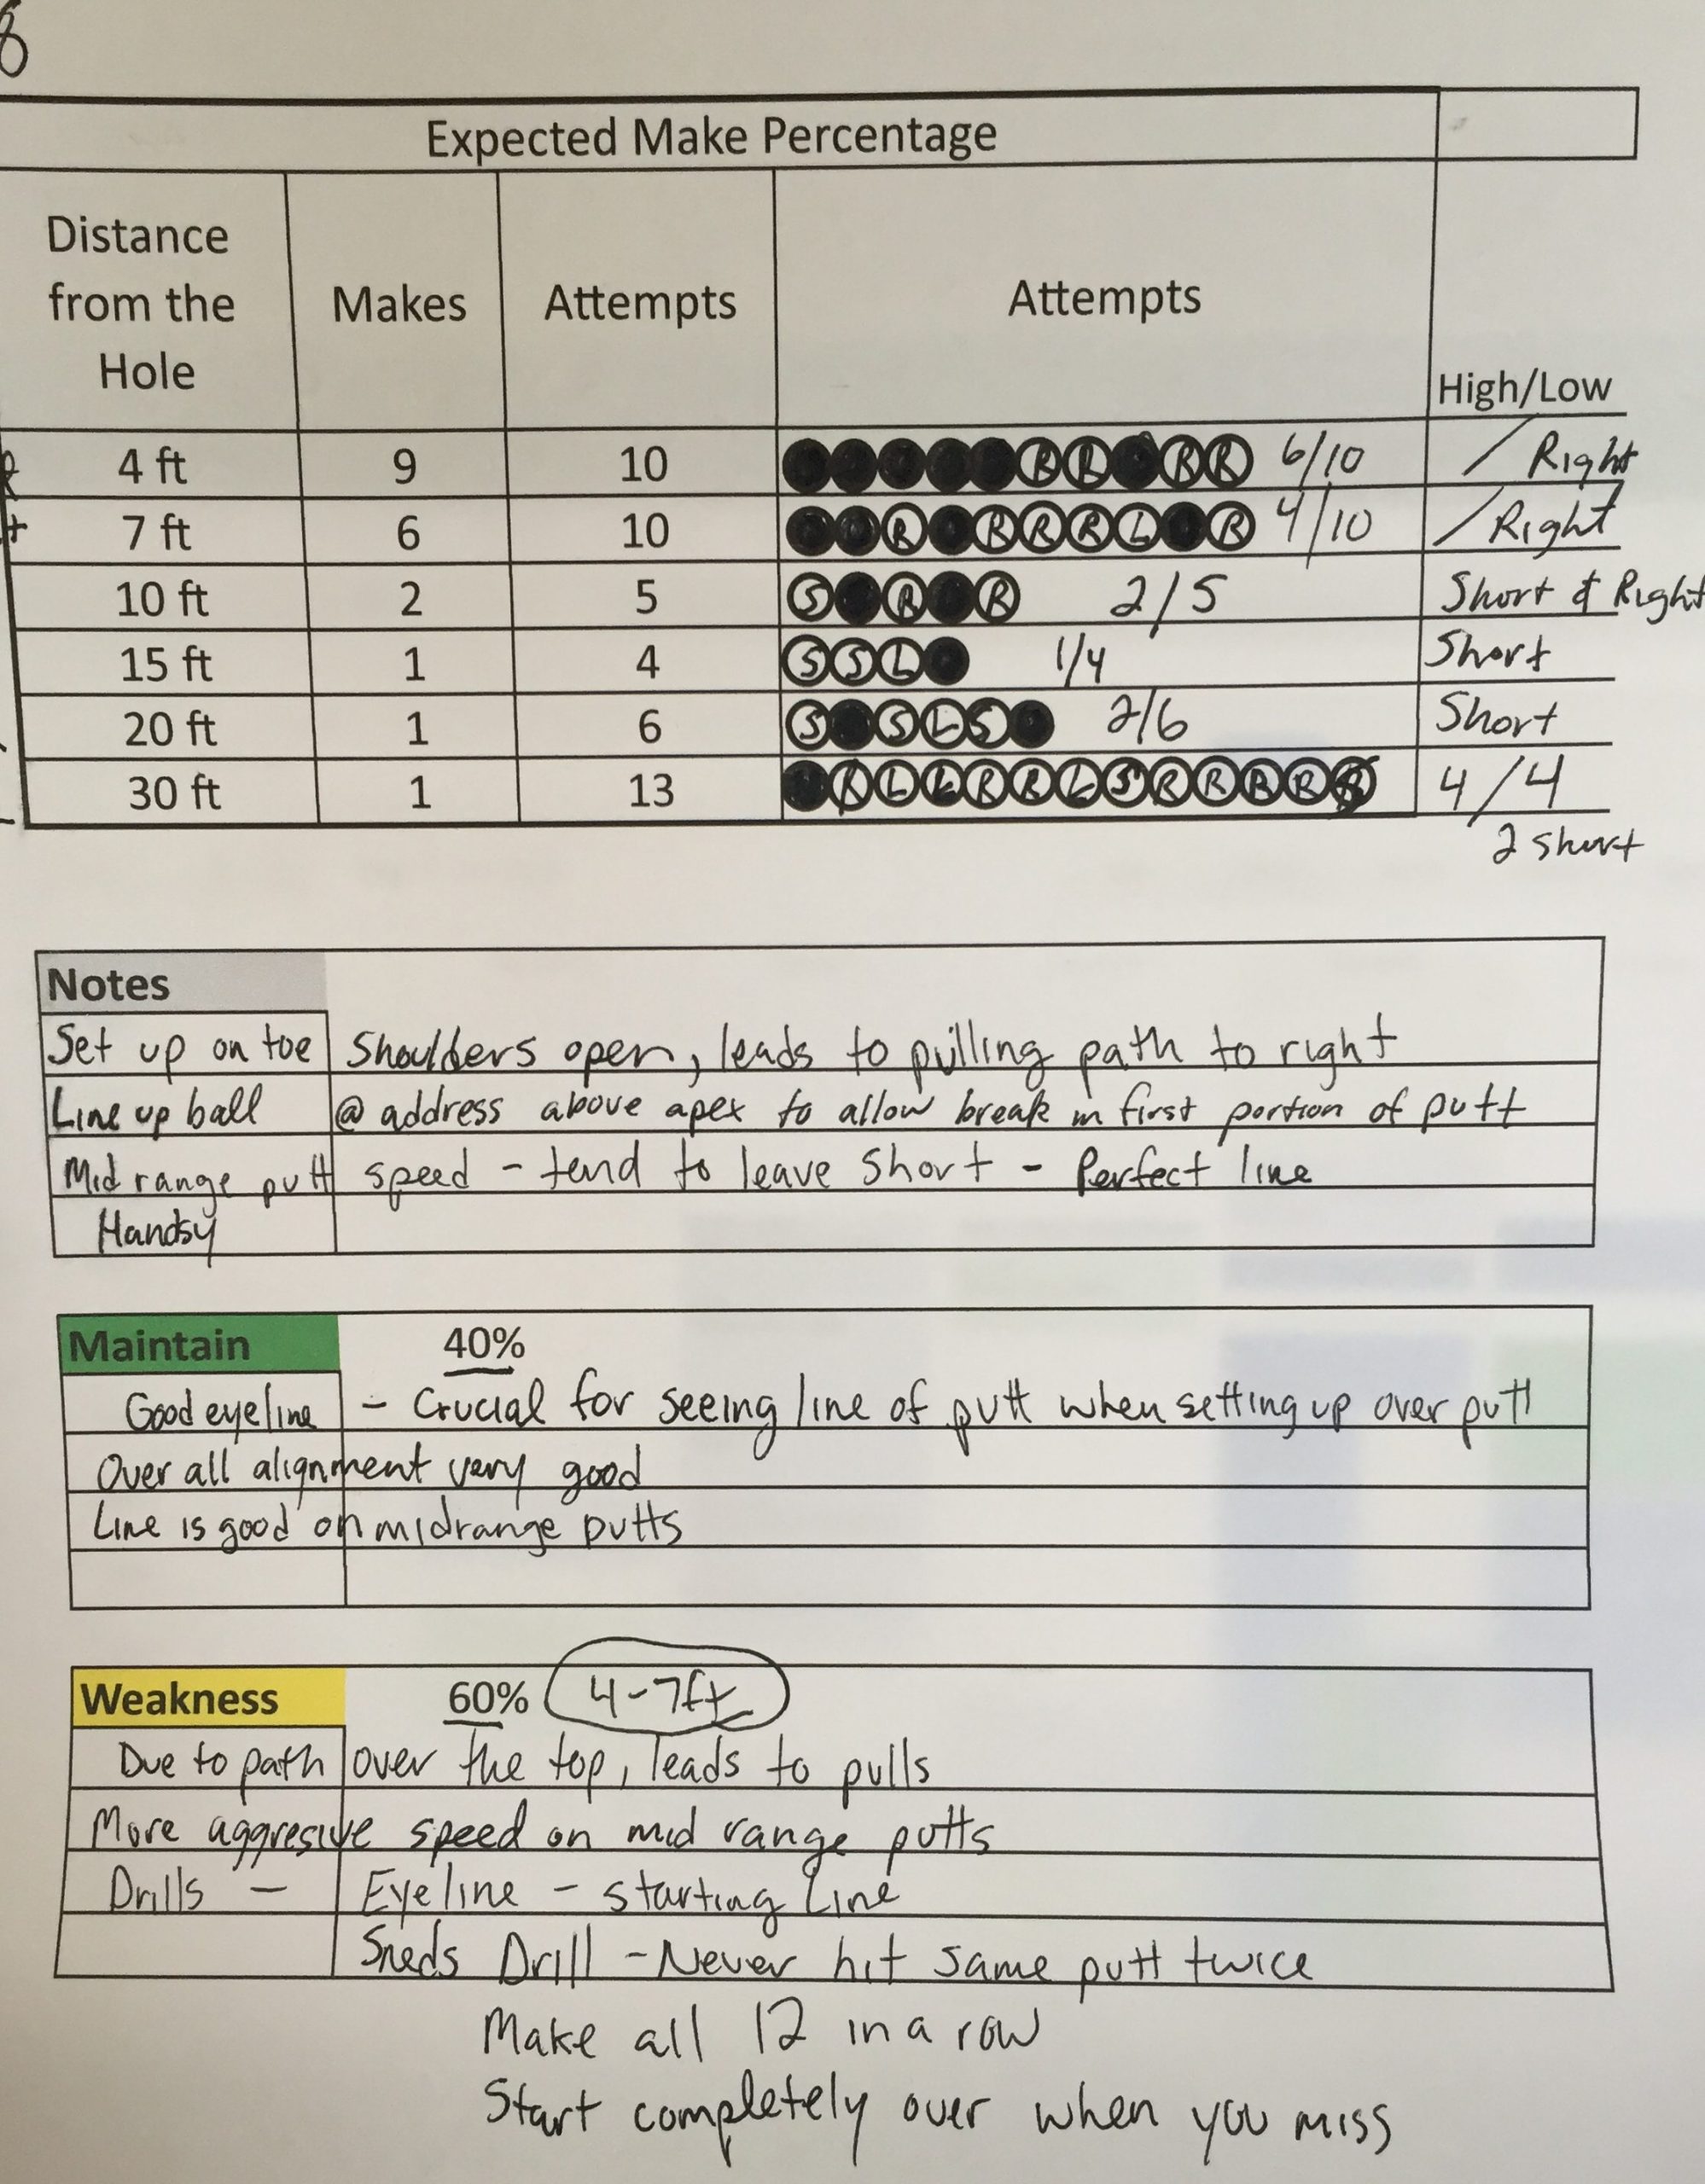 8
Expected Make Percentage
Distance from the Hole Makes Attempts Attempts High/Low
4 ft 9 10 R R R R 6/10 / Right
7 ft 6 10 R R R R L R 4/10 / Right
10 ft 2 5 S R R 2/5 Short & Right
15 ft 1 4 S S L 1/4 Short
20 ft 1 6 S S L S 2/6 Short
30 ft 1 13 R L L R R L S R R R R 4/4
2 short
Notes
Set up on toe Shoulders open, leads to pulling path to right
Line up ball @ address above apex to allow break in first portion of putt
Mid range putt speed - tend to leave short - Perfect line
Handsy
Maintain 40%
Good eyeline - Crucial for seeing line of putt when setting up over putt
Over all alignment very good
Line is good on midrange putts
Weakness 60% 4-7ft
Due to path over the top, leads to pulls
More aggresive speed on mid range putts
Drills - Eyeline - starting Line
Sneds Drill - Never hit same putt twice
Make all 12 in a row
Start completely over when you miss